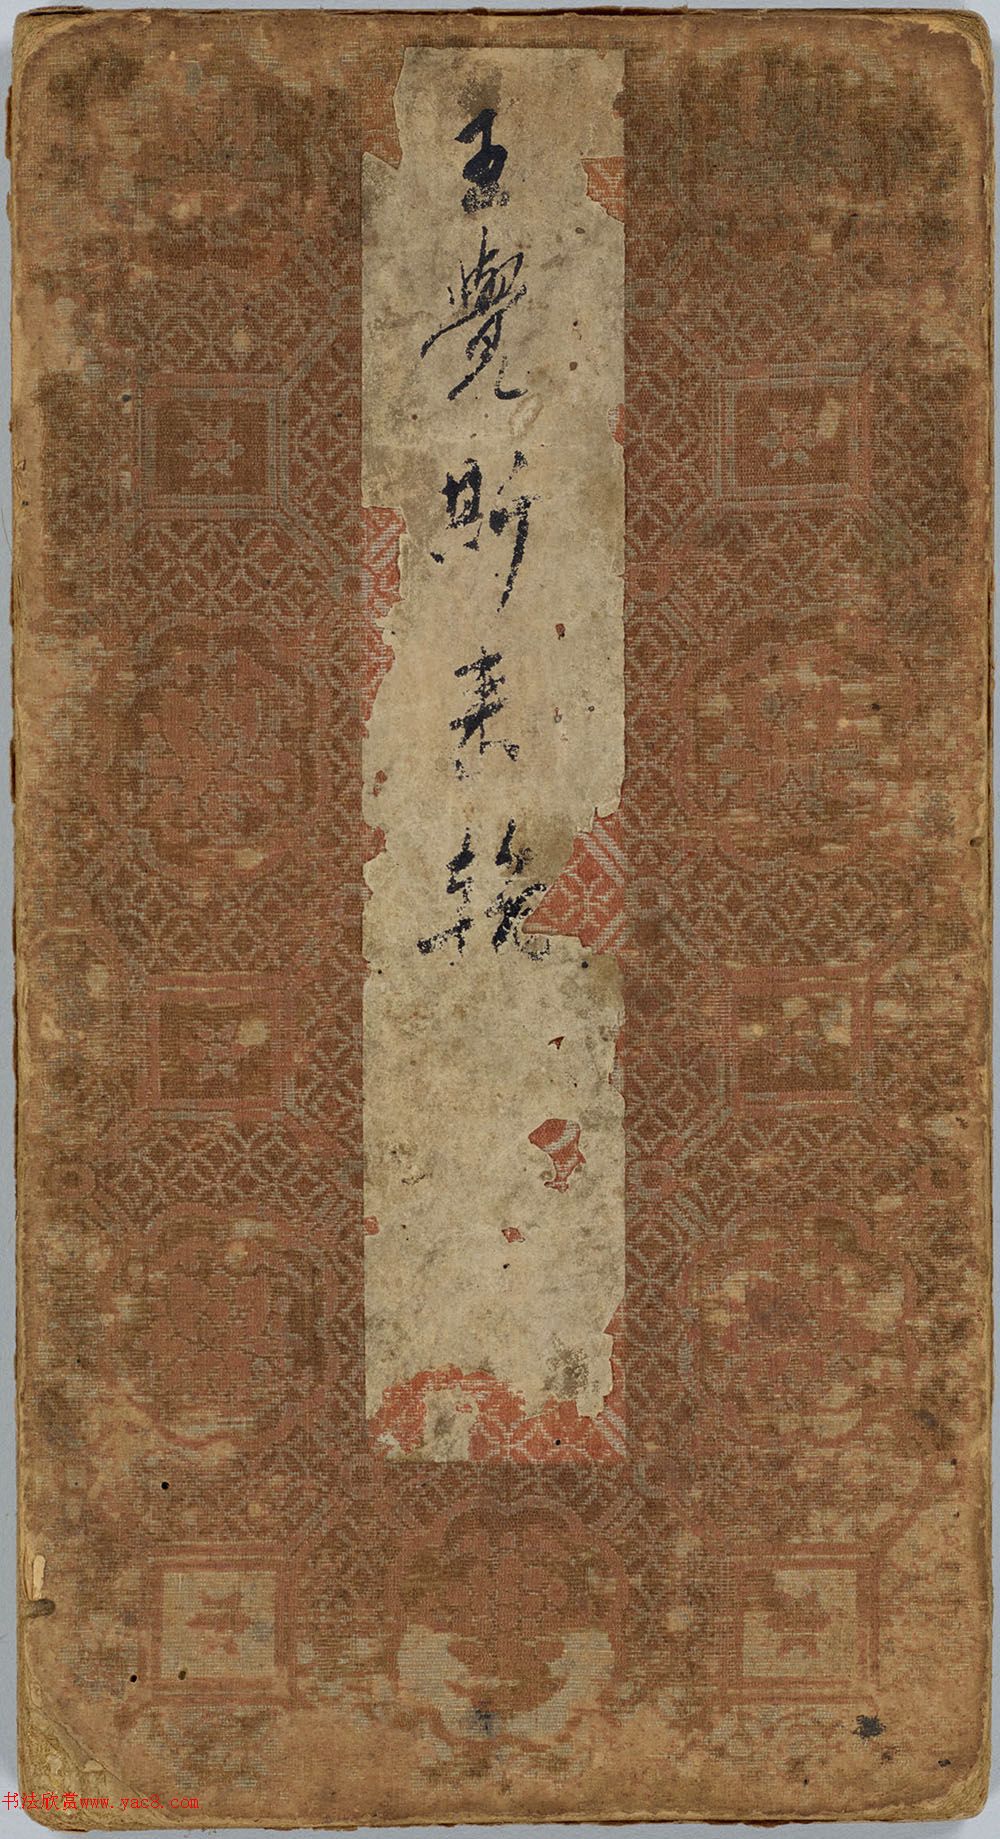 王覺斯表翰
书法欣赏www.yac8.com